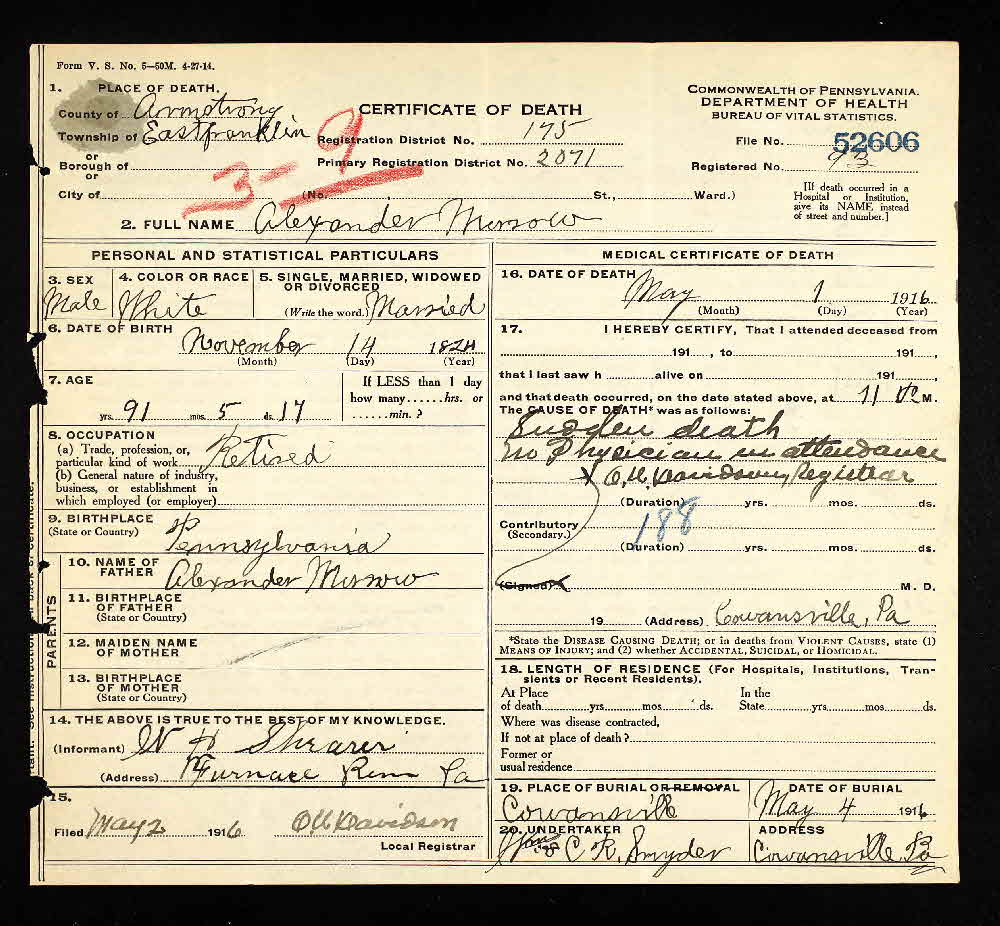 Form V. S. No. 5—50M. 4-27-14.
1. PLACE OF DEATH.
County of Armstrong
Township of Eastfranklin
or
Borough of
or
City of
3-9
CERTIFICATE OF DEATH
Registration District No. 175
Primary Registration District No. 2071
(No. St., Ward.)
COMMONWEALTH OF PENNSYLVANIA.
DEPARTMENT OF HEALTH
BUREAU OF VITAL STATISTICS.
File No. 52606
Registered No. 93
[If death occurred in a
Hospital or Institution,
give its NAME instead
of street and number.]
2. FULL NAME Alexander Morrow
PERSONAL AND STATISTICAL PARTICULARS
3. SEX
Male
4. COLOR OR RACE
White
5. SINGLE, MARRIED, WIDOWED
OR DIVORCED
(Write the word.) Married
6. DATE OF BIRTH
November 14 1824
(Month) (Day) (Year)
7. AGE
yrs. 91 mos. 5 ds. 17
If LESS than 1 day
how many......hrs. or
......min. ?
8. OCCUPATION
(a) Trade, profession, or,
particular kind of work Retired
(b) General nature of industry,
business, or establishment in
which employed (or employer)
9. BIRTHPLACE
(State or Country)
Pennsylvania
PARENTS
10. NAME OF
FATHER
Alexander Morrow
11. BIRTHPLACE
OF FATHER
(State or Country)
12. MAIDEN NAME
OF MOTHER
13. BIRTHPLACE
OF MOTHER
(State or Country)
14. THE ABOVE IS TRUE TO THE BEST OF MY KNOWLEDGE.
(Informant) W H Shearer
(Address) Furnace Run Pa
15.
Filed May 2 1916 O K Davidson
Local Registrar
MEDICAL CERTIFICATE OF DEATH
16. DATE OF DEATH
May 1 1916
(Month) (Day) (Year)
17. I HEREBY CERTIFY, That I attended deceased from
191...., to 191....,
that I last saw h alive on 191....,
and that death occurred, on the date stated above, at 11 P M.
The CAUSE OF DEATH* was as follows:
Sudden death
no Physician in attendance
Davidson, Registrar
(Duration) yrs. mos. ds.
188
Contributory
(Secondary.)
(Duration) yrs. mos. ds.
(Signed) M. D.
19 (Address) Cowansville, Pa
*State the DISEASE CAUSING DEATH; or in deaths from VIOLENT CAUSES, state (1)
MEANS OF INJURY; and (2) whether ACCIDENTAL, SUICIDAL, or HOMICIDAL.
18. LENGTH OF RESIDENCE (For Hospitals, Institutions, Tran-
sients or Recent Residents).
At Place In the
of death yrs. mos. ds. State yrs. mos. ds.
Where was disease contracted,
If not at place of death?
Former or
usual residence
19. PLACE OF BURIAL OR REMOVAL
Cowansville
DATE OF BURIAL
May 4 1916
20. UNDERTAKER
C R. Snyder
ADDRESS
Cowansville Pa